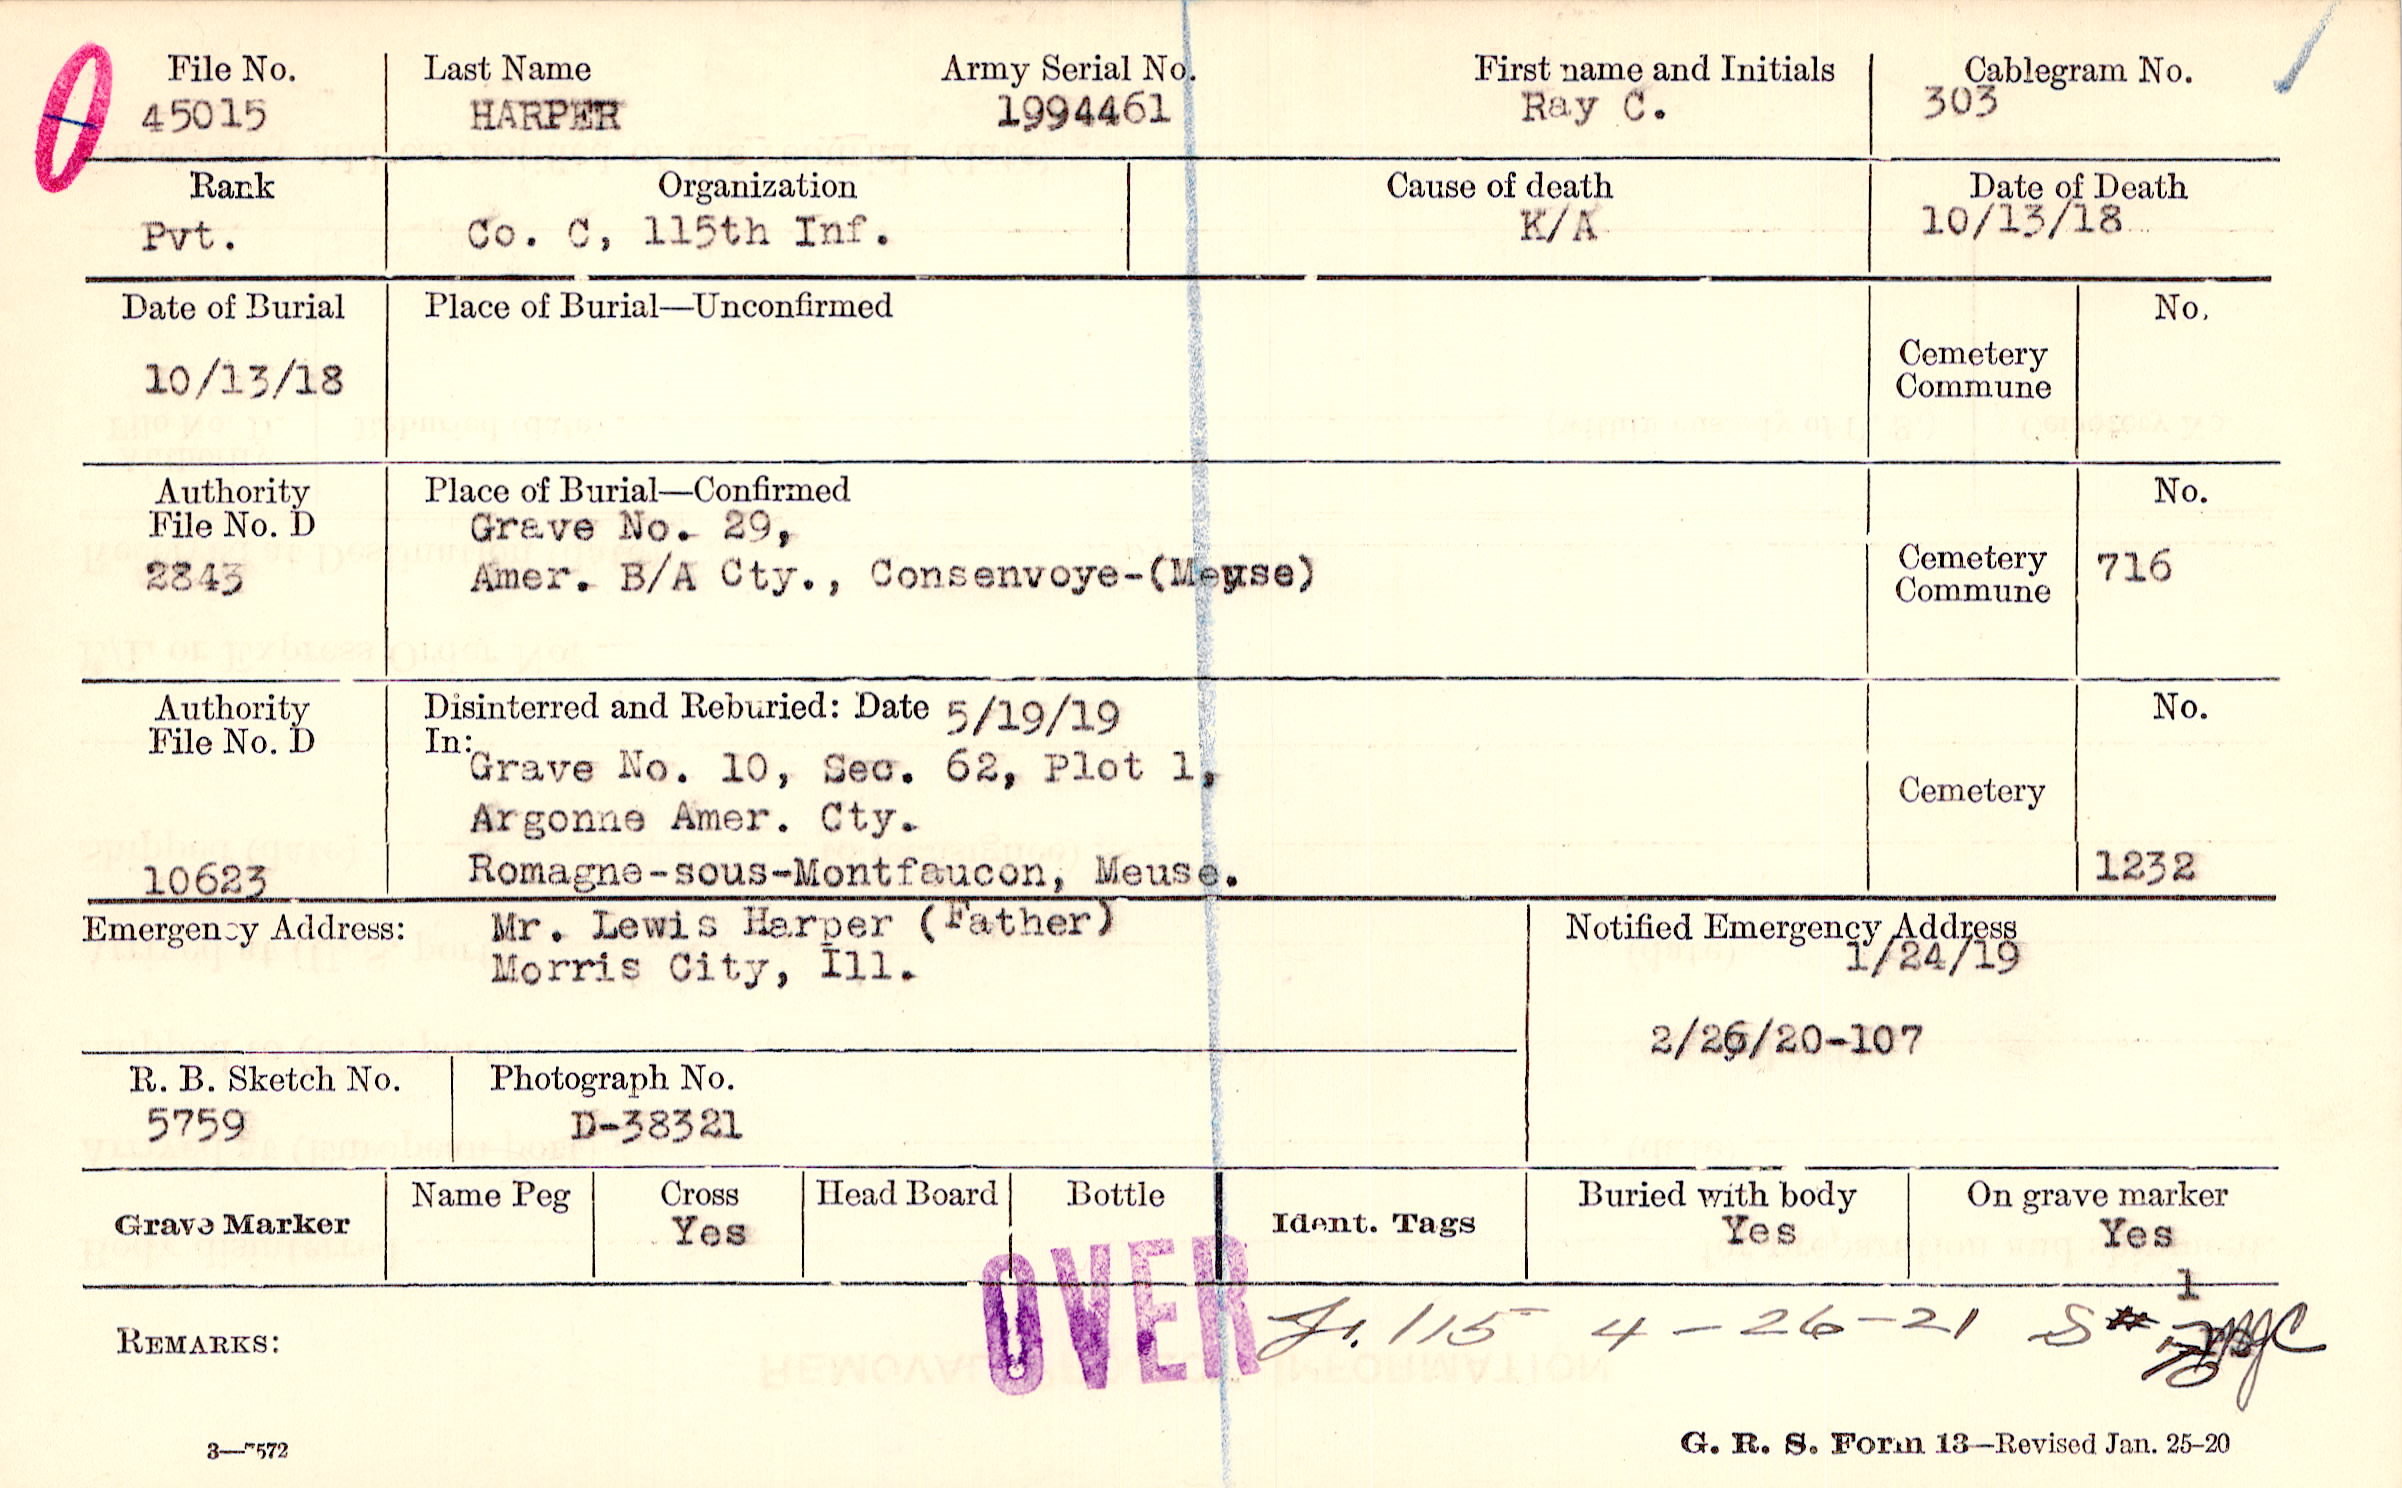 File No. Last Name Army Serial No. First name and Initials Cablegram No.
45015 HARPER 1994461 Ray C. 303
Rank Organization Cause of death Date of Death
Pvt. Co. C, 115th Inf. K/A 10/13/18
Date of Burial Place of Burial—Unconfirmed No.
10/13/18
Cemetery
Commune
Authority Place of Burial—Confirmed No.
File No. D Grave No. 29,
2843 Amer. B/A Cty., Consenvoye-(Meuse)
Cemetery 716
Commune
Authority Disinterred and Reburied: Date 5/19/19 No.
File No. D In:
Grave No. 10, Sec. 62, Plot 1,
Cemetery
Argonne Amer. Cty.
10623 Romagne-sous-Montfaucon, Meuse. 1232
Emergency Address: Mr. Lewis Harper (Father) Notified Emergency Address
Morris City, Ill. 1/24/19
2/26/20-107
R. B. Sketch No. Photograph No.
5759 D-38321
Grave Marker Name Peg Cross Head Board Bottle Ident. Tags Buried with body On grave marker
Yes Yes Yes
1
OVER
115 4-26-21 S#
REMARKS:
3—7572 G. R. S. Form 13—Revised Jan. 25-20